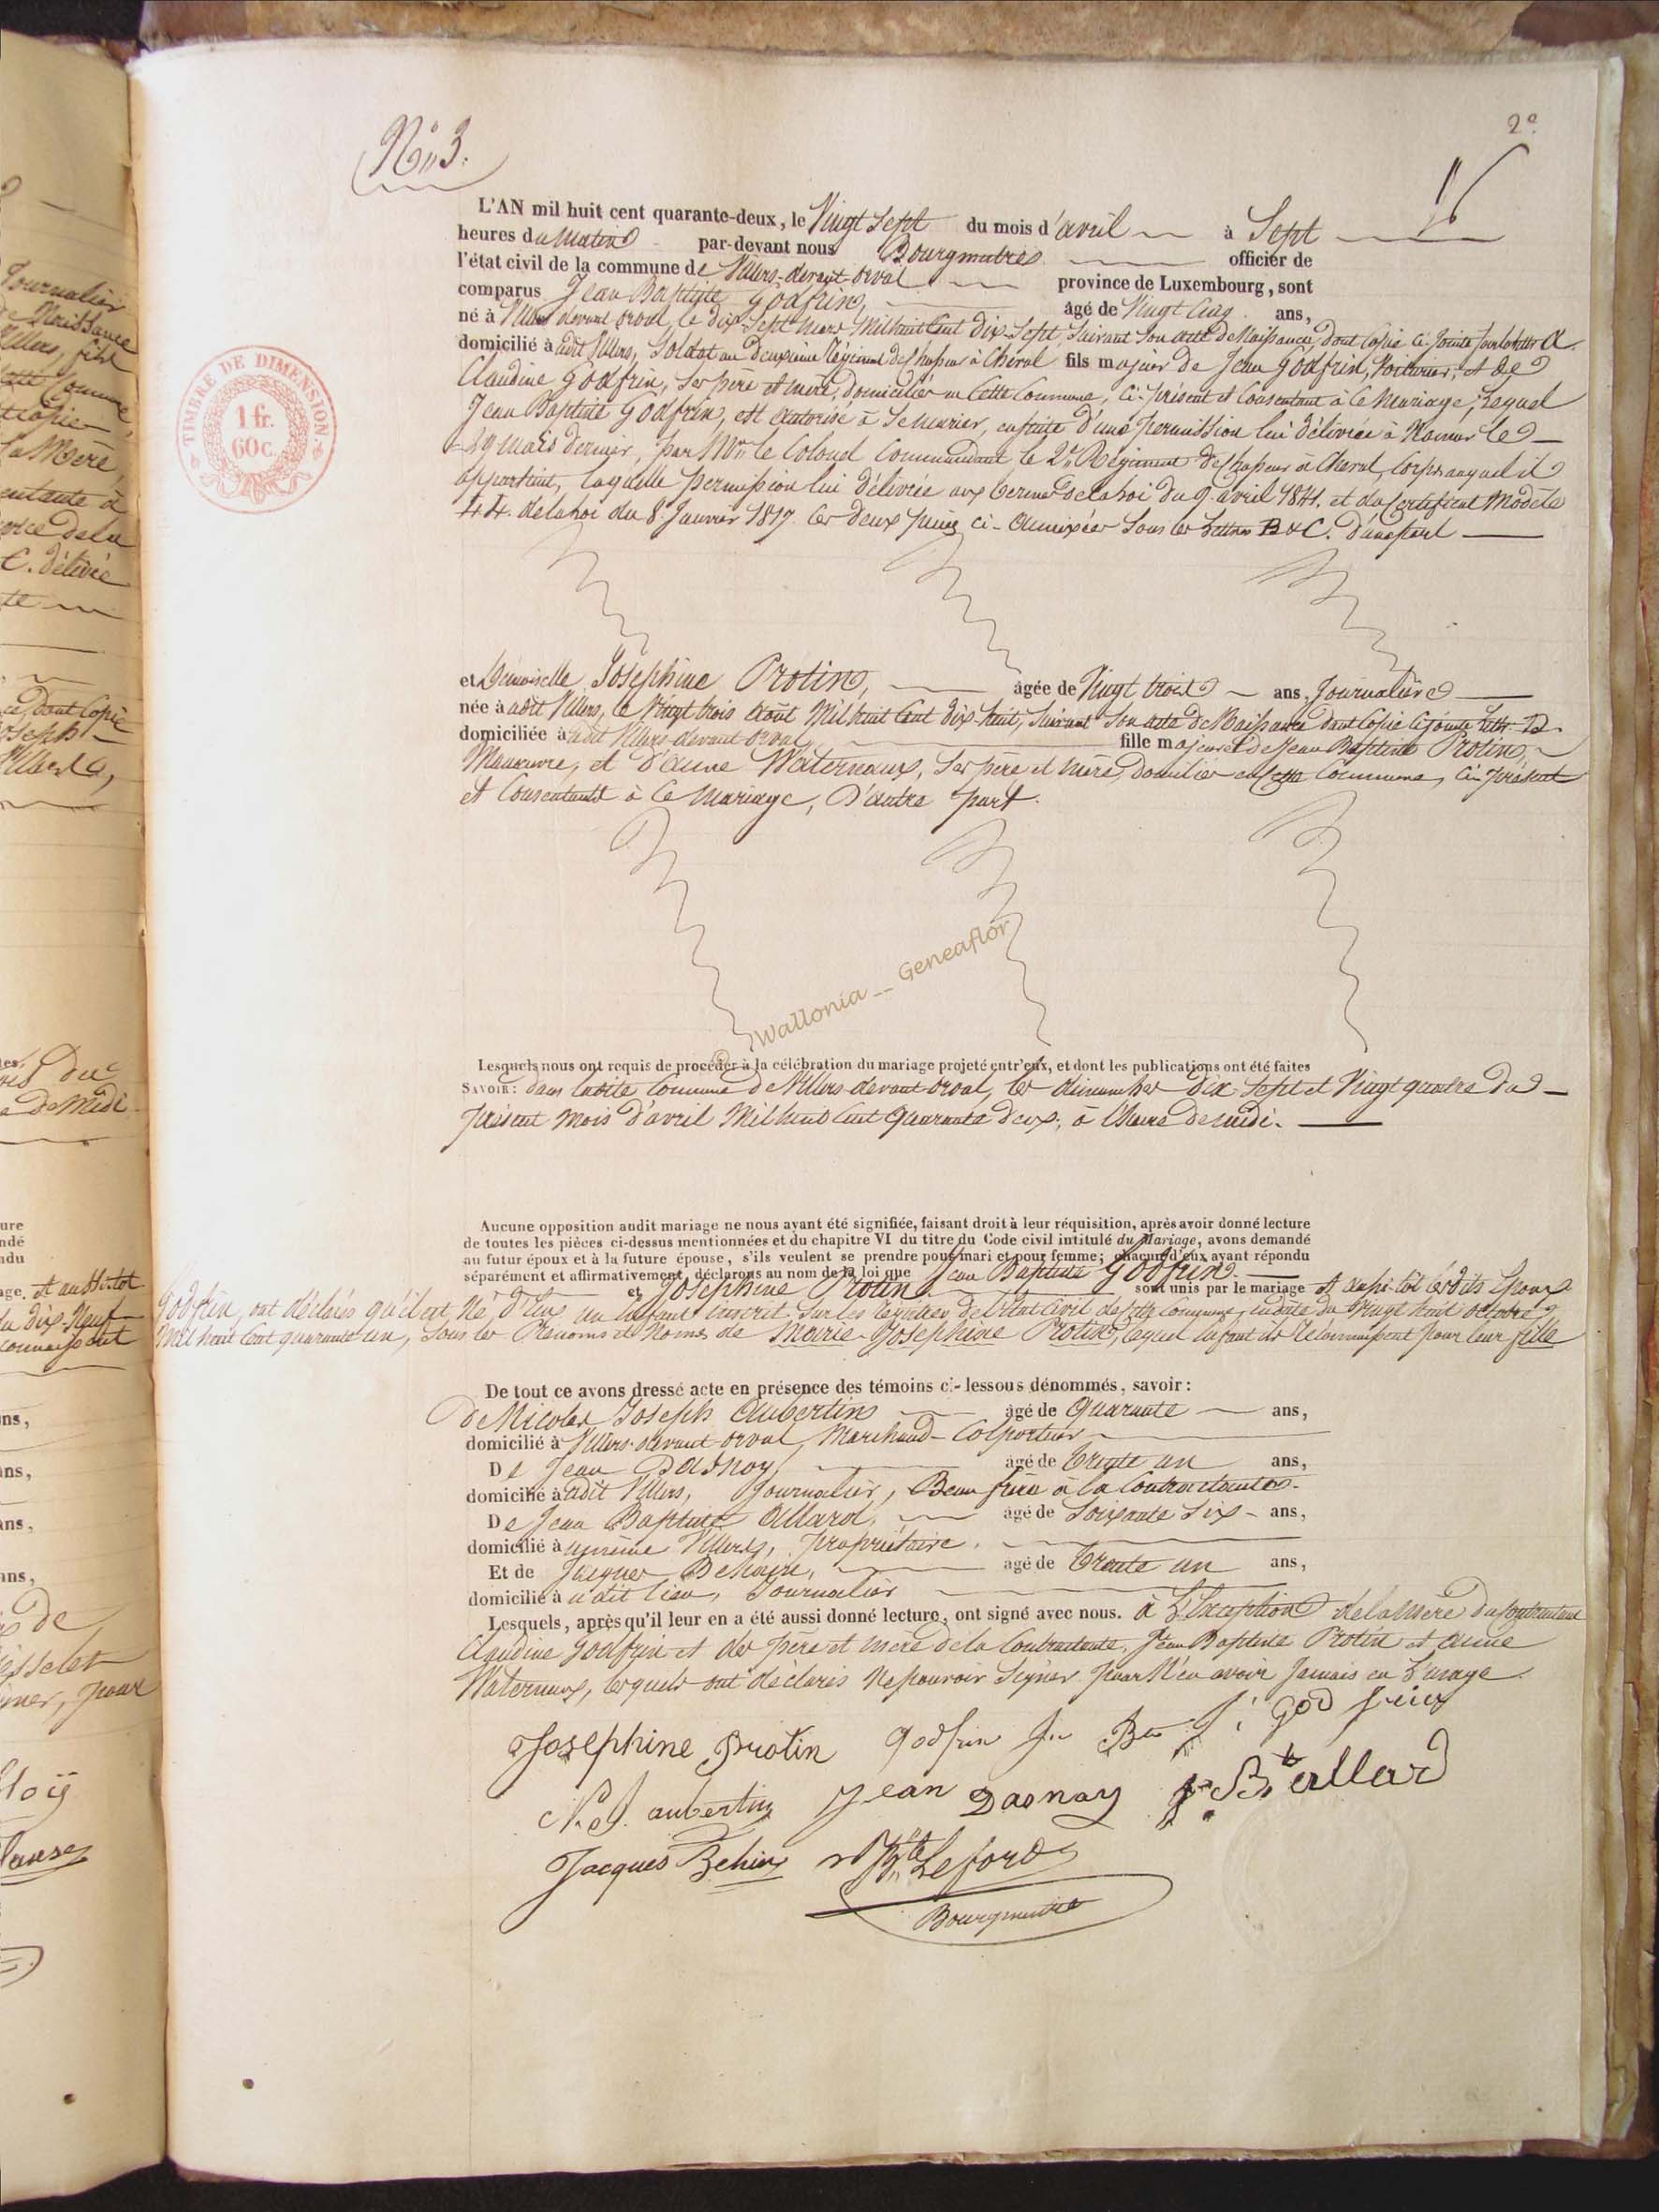 2e.
No. 3.
TIMBRE DE DIMENSION.
1 fr.
60c.
L'AN mil huit cent quarante-deux, le Vingt Sept du mois d'avril à Sept
heures du Matin par-devant nous Bourgmestre officier de
l'état civil de la commune de Villers-devant-orval province de Luxembourg, sont
comparus Jean Baptiste Godfrin, âgé de Vingt Cinq ans,
né à Villers devant orval, le dix-Sept mars Mil huit Cent Dix-Sept, Suivant Son acte de Naissance, dont Copie ci-jointe Sous lettre A
domicilié à udit Villers, Soldat au Deuxième Régiment de Chasseur à Cheval fils majeur de Jean Godfrin, Voiturier, et de
Claudine Godfrin, Ses père et mère, domiciliés en cette Commune, Ci-présent et Consentant à ce Mariage, Lequel
Jean Baptiste Godfrin, est autorisé à Se marier, ensuite d'une permission lui délivrée à Namur le
dernier, par Mr. le Colonel Commandant le 2e Régiment de Chasseur à Cheval, Corps auquel il
appartient, laquelle permission lui délivrée aux termes de la Loi du 9 avril 1841. et du Certificat Modèle
de la Loi du 8 Janvier 1817. les deux pièces ci-annexées Sous les Lettres B & C. D'une part
et Demoiselle Josephine Protin, âgée de Vingt trois ans, Journalière
née à udit Villers, le Vingt trois août Mil huit Cent dix huit, Suivant Son acte de Naissance dont Copie Ci jointe Lettre D.
domiciliée à udit Villers-devant-Orval fille majeure de Jean Baptiste Protin,
Manœuvre, et D'anne Waternaux, Ses père et mère, domiciliés en cette Commune, Ci-présent
et Consentant à ce Mariage, D'autre part.
© Wallonia __ Geneaflor
Lesquels nous ont requis de procéder à la célébration du mariage projeté entr'eux, et dont les publications ont été faites
SAVOIR: dans ladite Commune de Villers devant orval, les dimanches Dix-Sept et Vingt quatre du
présent mois d'avril Mil huit Cent Quarante deux, à l'heure de midi.
Aucune opposition audit mariage ne nous ayant été signifiée, faisant droit à leur réquisition, après avoir donné lecture
de toutes les pièces ci-dessus mentionnées et du chapitre VI du titre du Code civil intitulé du Mariage, avons demandé
au futur époux et à la future épouse, s'ils veulent se prendre pour mari et pour femme; chacun d'eux ayant répondu
séparément et affirmativement, déclarons au nom de la loi que Jean Baptiste Godfrin
et Josephine Protin sont unis par le mariage et aussi-tôt lesdits Epoux
Godfrin, ont déclarés qu'il est Né d'Eux un Enfant inscrit Sur les Registres de l'état Civil de cette Commune, en date du Vingt huit octobre
Mil huit Cent quarante un, Sous les Prenoms et Noms de Marie-Josephine Protin, lequel Enfant ils reconnaissent pour leur fille
De tout ce avons dressé acte en présence des témoins ci-dessous dénommés, savoir:
De Nicolas Joseph Aubertin âgé de Quarante ans,
domicilié à Villers-devant-orval, Marchand-Colporteur
De Jean Dasnoy, âgé de trente un ans,
domicilié à udit Villers, Journalier, Beau frère à la Contractante.
De Jean Baptiste Allard, âgé de Soixante Six ans,
domicilié à u même Villers, propriétaire,
Et de Jacques Behin, âgé de trente un ans,
domicilié à u dit lieu, Journalier
Lesquels, après qu'il leur en a été aussi donné lecture, ont signé avec nous. à L'Exception de la mère du Contractant
Claudine Godfrin et des père et mère de la Contractante, Jean Baptiste Protin et anne
Waternaux, lesquels ont déclarés Ne pouvoir Signer pour N'en avoir Jamais eu L'usage.
Josephine Protin godfrin Jn Bte J. god frin
N. J. aubertin Jean Dasnoy J. Bte allard
Jacques Behin Leford
Bourgmestre